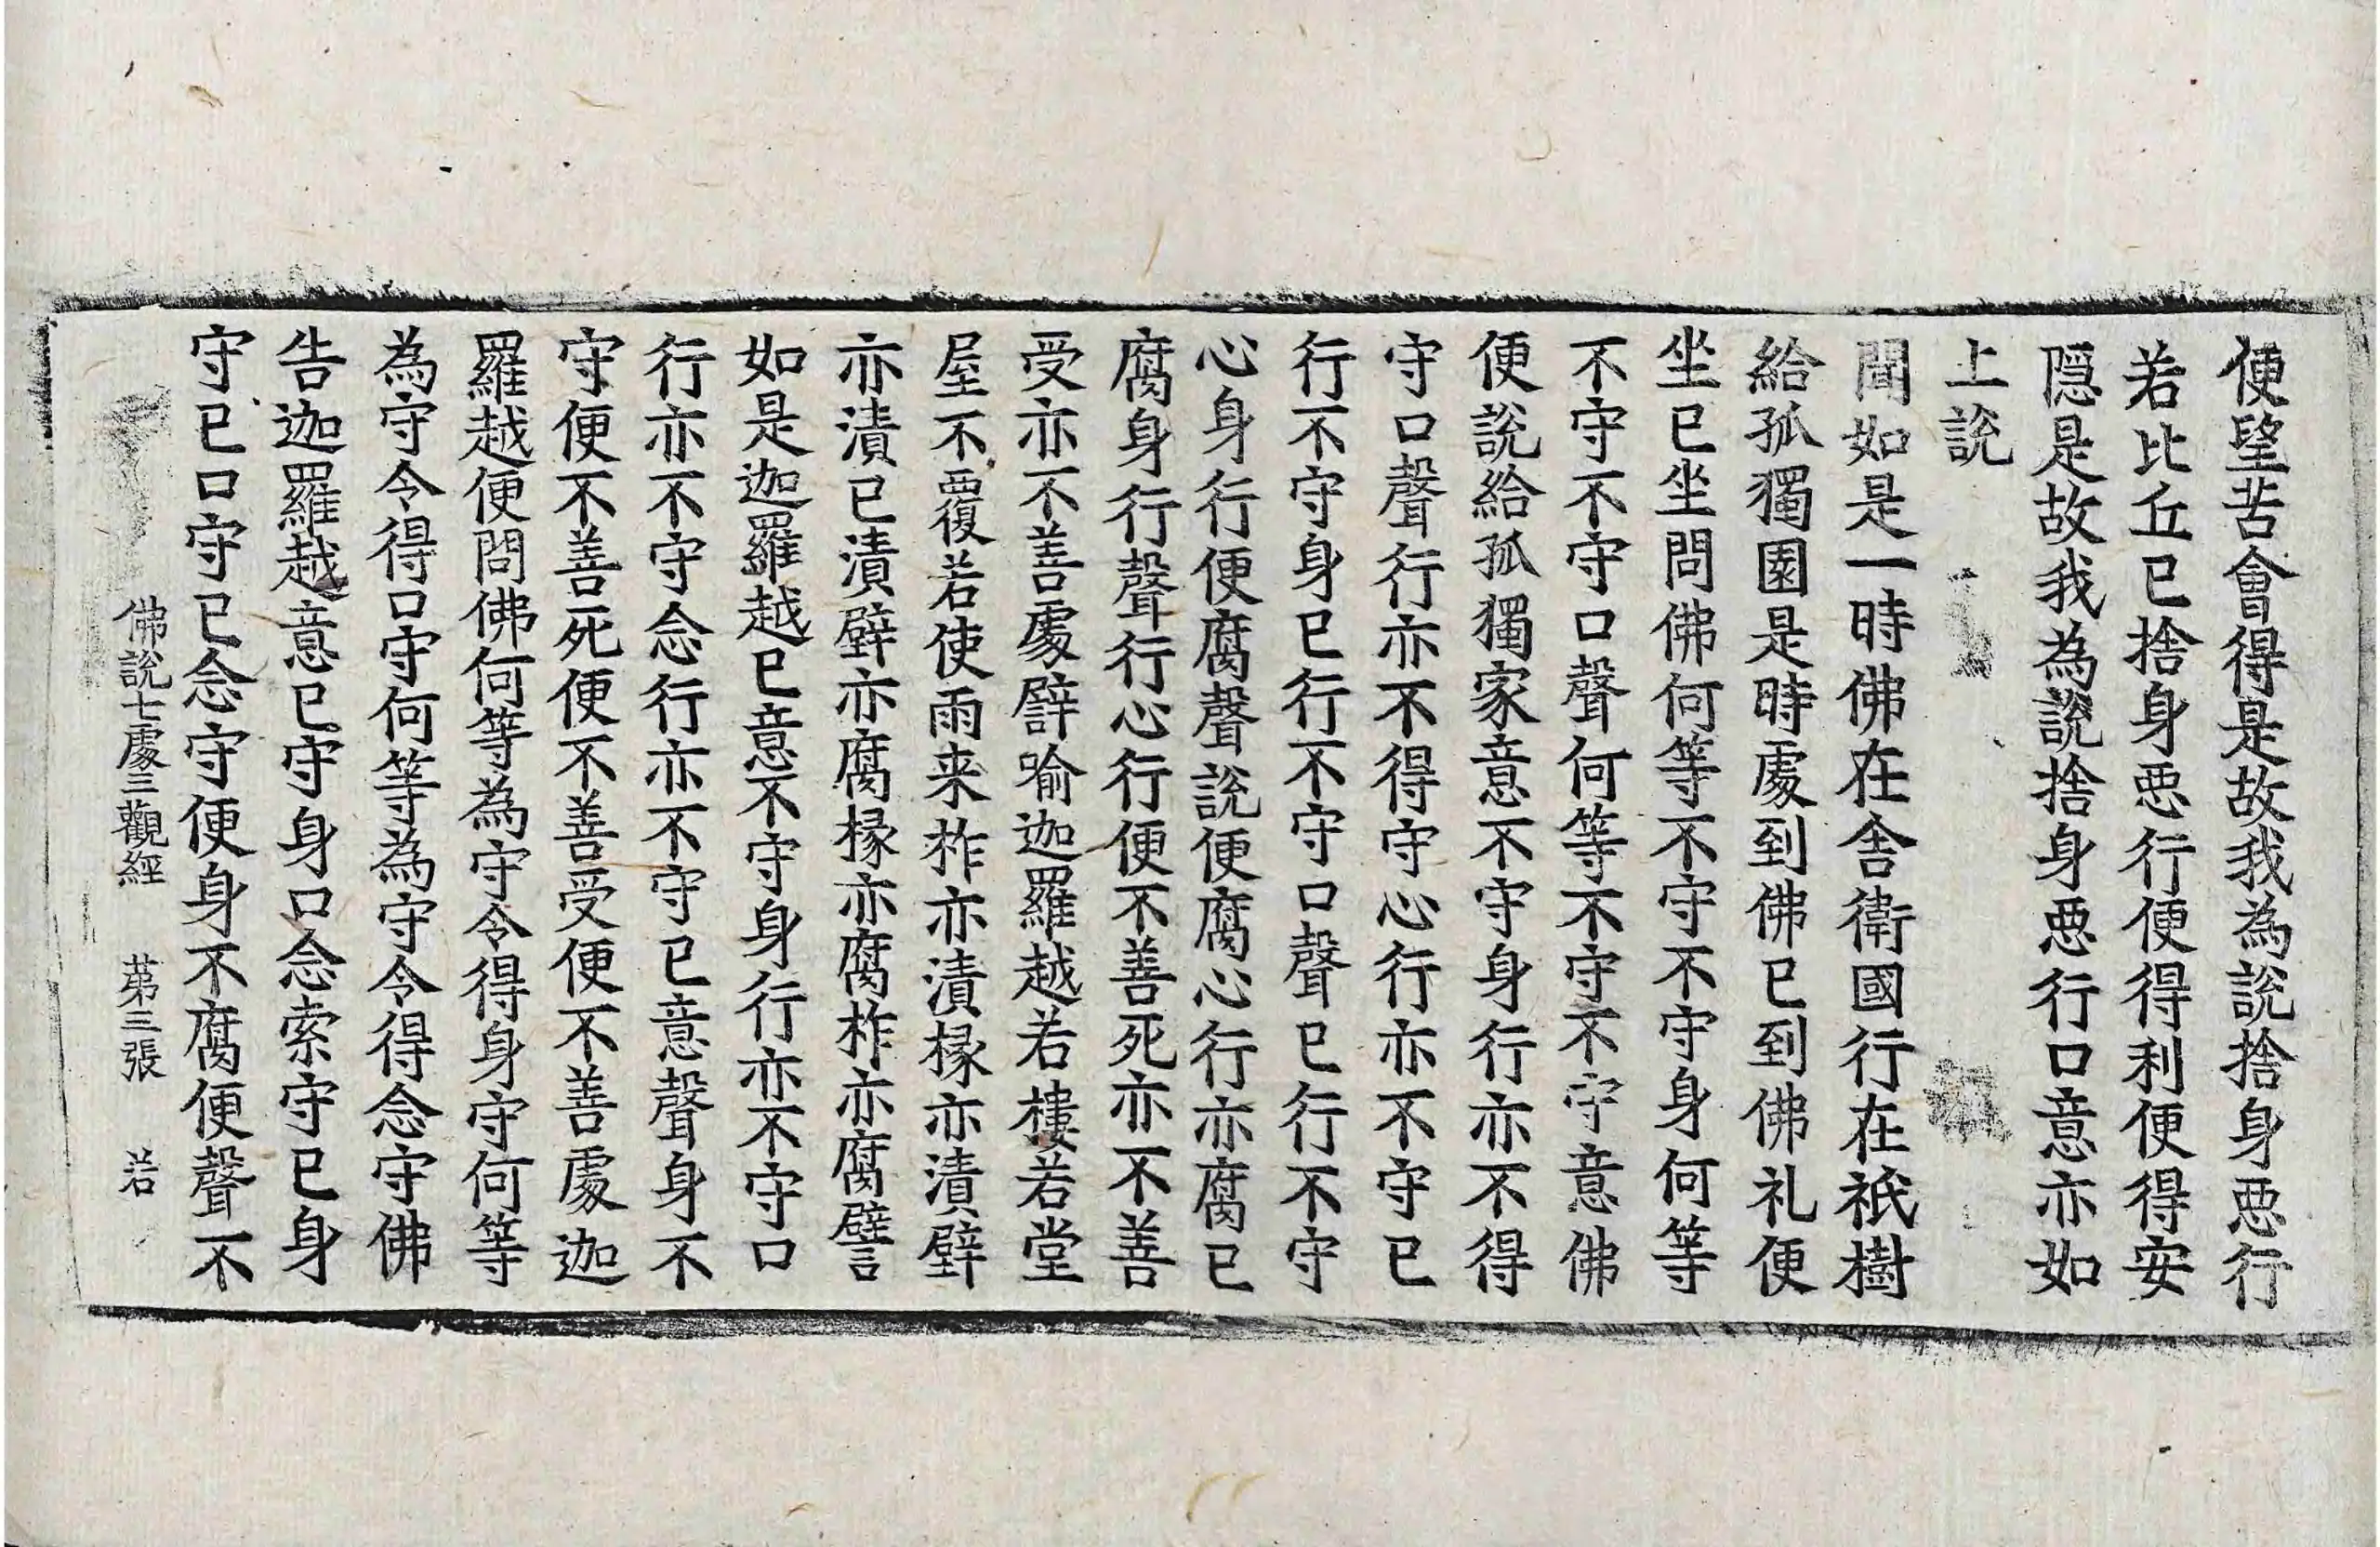 便望苦會得是故我為說捨身悪行
若比丘已捨身悪行便得利便得安
隠是故我為說捨身悪行口意亦如
上說
聞如是一時佛在舎衛國行在祇樹
給孤獨園是時處到佛已到佛礼便
坐已坐問佛何等不守不守身何等
不守不守口聲何等不守不守意佛
便說給孤獨家意不守身行亦不得
守口聲行亦不得守心行亦不守已
行不守身已行不守口聲已行不守
心身行便腐聲說便腐心行亦腐已
腐身行聲行心行便不善死亦不善
受亦不善處譬喻迦羅越若樓若堂
屋不覆若使雨来柞亦漬椽亦漬壁
亦漬已漬壁亦腐椽亦腐柞亦腐譬
如是迦羅越已意不守身行亦不守口
行亦不守念行亦不守已意聲身不
守便不善死便不善受便不善處迦
羅越便問佛何等為守令得身守何等
為守令得口守何等為守令得念守佛
告迦羅越意已守身口念索守已身
守已口守已念守便身不腐便聲不
佛說七處三觀經 苐三張 若